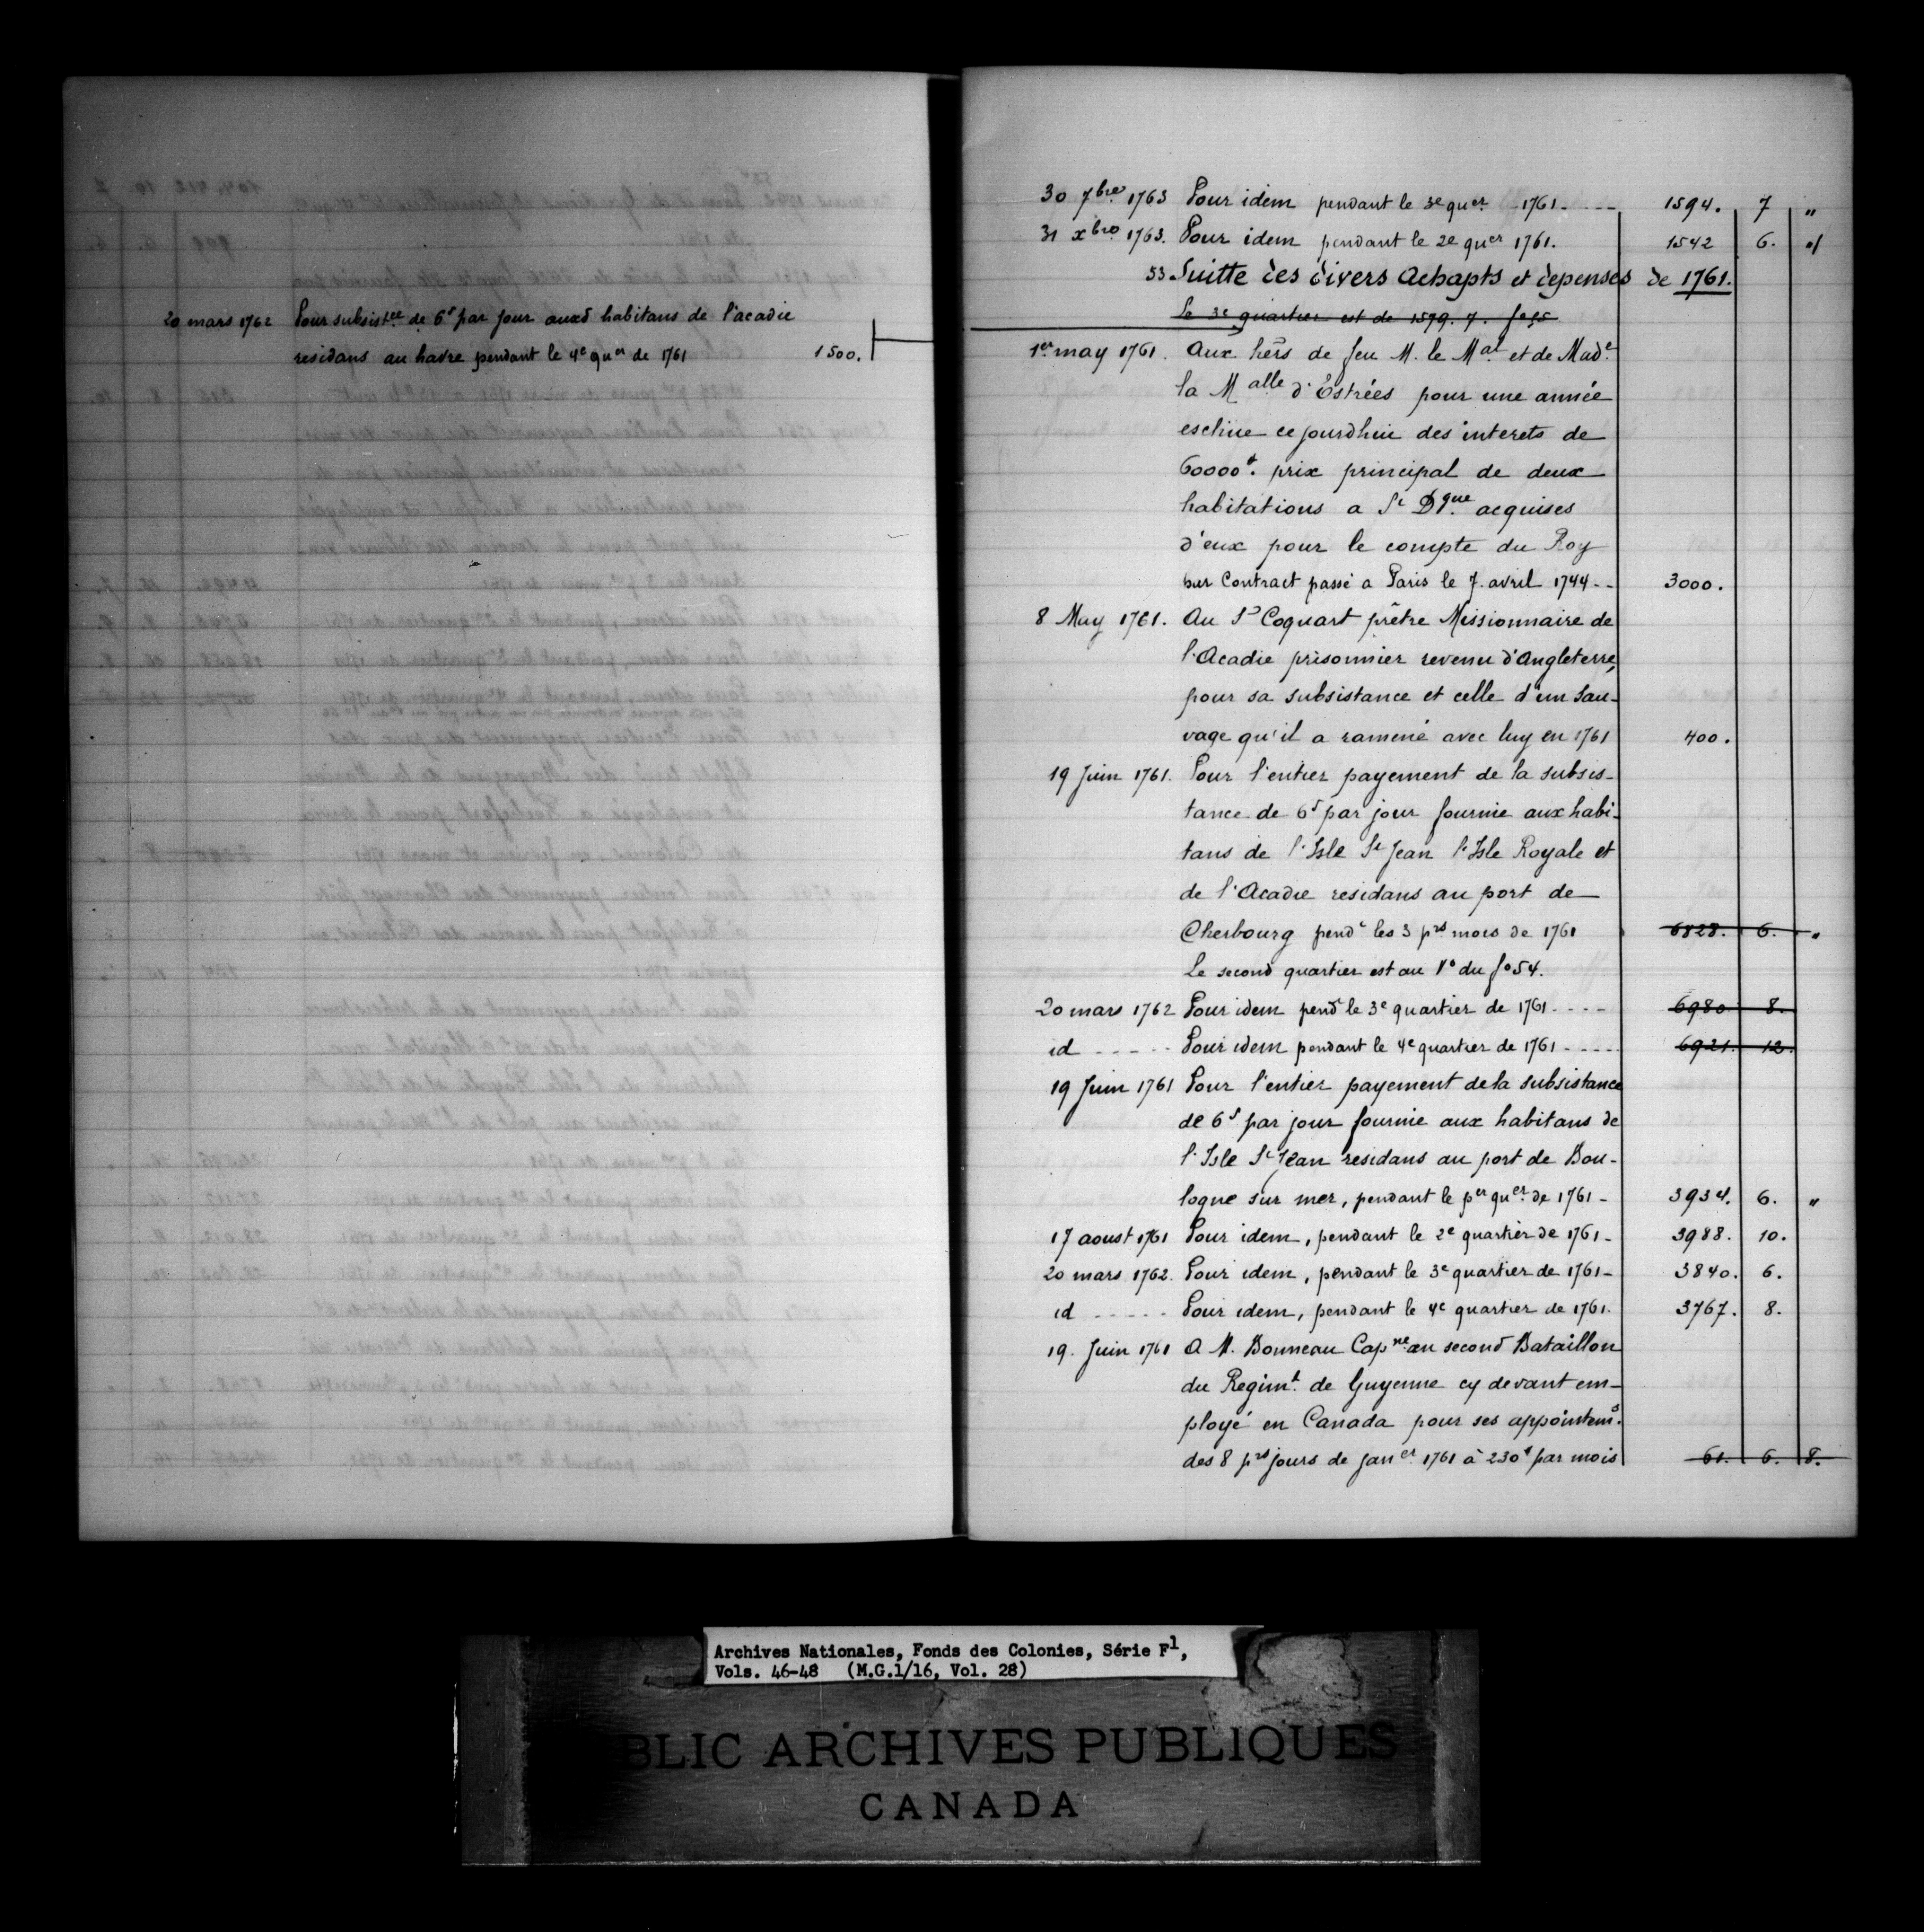 20 mars 1762 Pour subsistce de 6s par jour auxd habitans de l'acadie
residans au havre pendant le 4e quer de 1761 1500.
30 7bre 1763 Pour idem pendant le 3e quer 1761 - - - - 1594. 7 "
31 xbre 1763. Pour idem pendant le 2e quer 1761. 1542 6. "
53. Suitte des divers Achapts et depenses de 1761.
Le 3e quartier est de 1579. 7. fo 95
1er may 1761. Aux hērs de feu M. le Mal et de Made
la Malle d'Estrées pour une année
eschue ce jourdhui des interets de
60000#. prix principal de deux
habitations a St Dgue acquises
d'eux pour le compte du Roy
par Contract passé a Paris le 7. avril 1744 - - 3000.
8 May 1761. Au Sr Coquart prêtre Missionnaire de
l'Acadie prisonnier revenu d'Angleterre,
pour sa subsistance et celle d'un sau-
vage qu'il a ramené avec luy en 1761 400.
19 Juin 1761. Pour l'entier payement de la subsis-
tance de 6s par jour fournie aux habi-
tans de l'Isle St Jean l'Isle Royale et
de l'Acadie residans au port de
Cherbourg pendt les 3 prs mois de 1761 6828. 6. "
Le second quartier est au Vo du fo 54.
20 mars 1762 Pour idem pendt le 3e quartier de 1761 - - - - 6980 8.
id - - - - - Pour idem pendant le 4e quartier de 1761 - - - - - 6921. 12.
19 Juin 1761 Pour l'entier payement de la subsistance
de 6s par jour fournie aux habitans de
l'Isle St Jean residans au port de Bou-
logne sur mer, pendant le per quer de 1761 - 3934. 6. "
17 aoust 1761 Pour idem, pendant le 2e quartier de 1761 - 3988. 10.
20 mars 1762. Pour idem, pendant le 3e quartier de 1761 - 3840. 6.
id - - - - - Pour idem, pendant le 4e quartier de 1761. 3767. 8.
19. Juin 1761 A M. Bonneau Capne au second Bataillon
du Regimt de Guyenne cy devant em-
ployé en Canada pour ses appointems.
des 8 prs jours de janer 1761 à 230# par mois 61. 6. 8.
Archives Nationales, Fonds des Colonies, Série F1,
Vols. 46-48 (M.G.1/16, Vol. 28)
BLIC ARCHIVES PUBLIQUES
CANADA